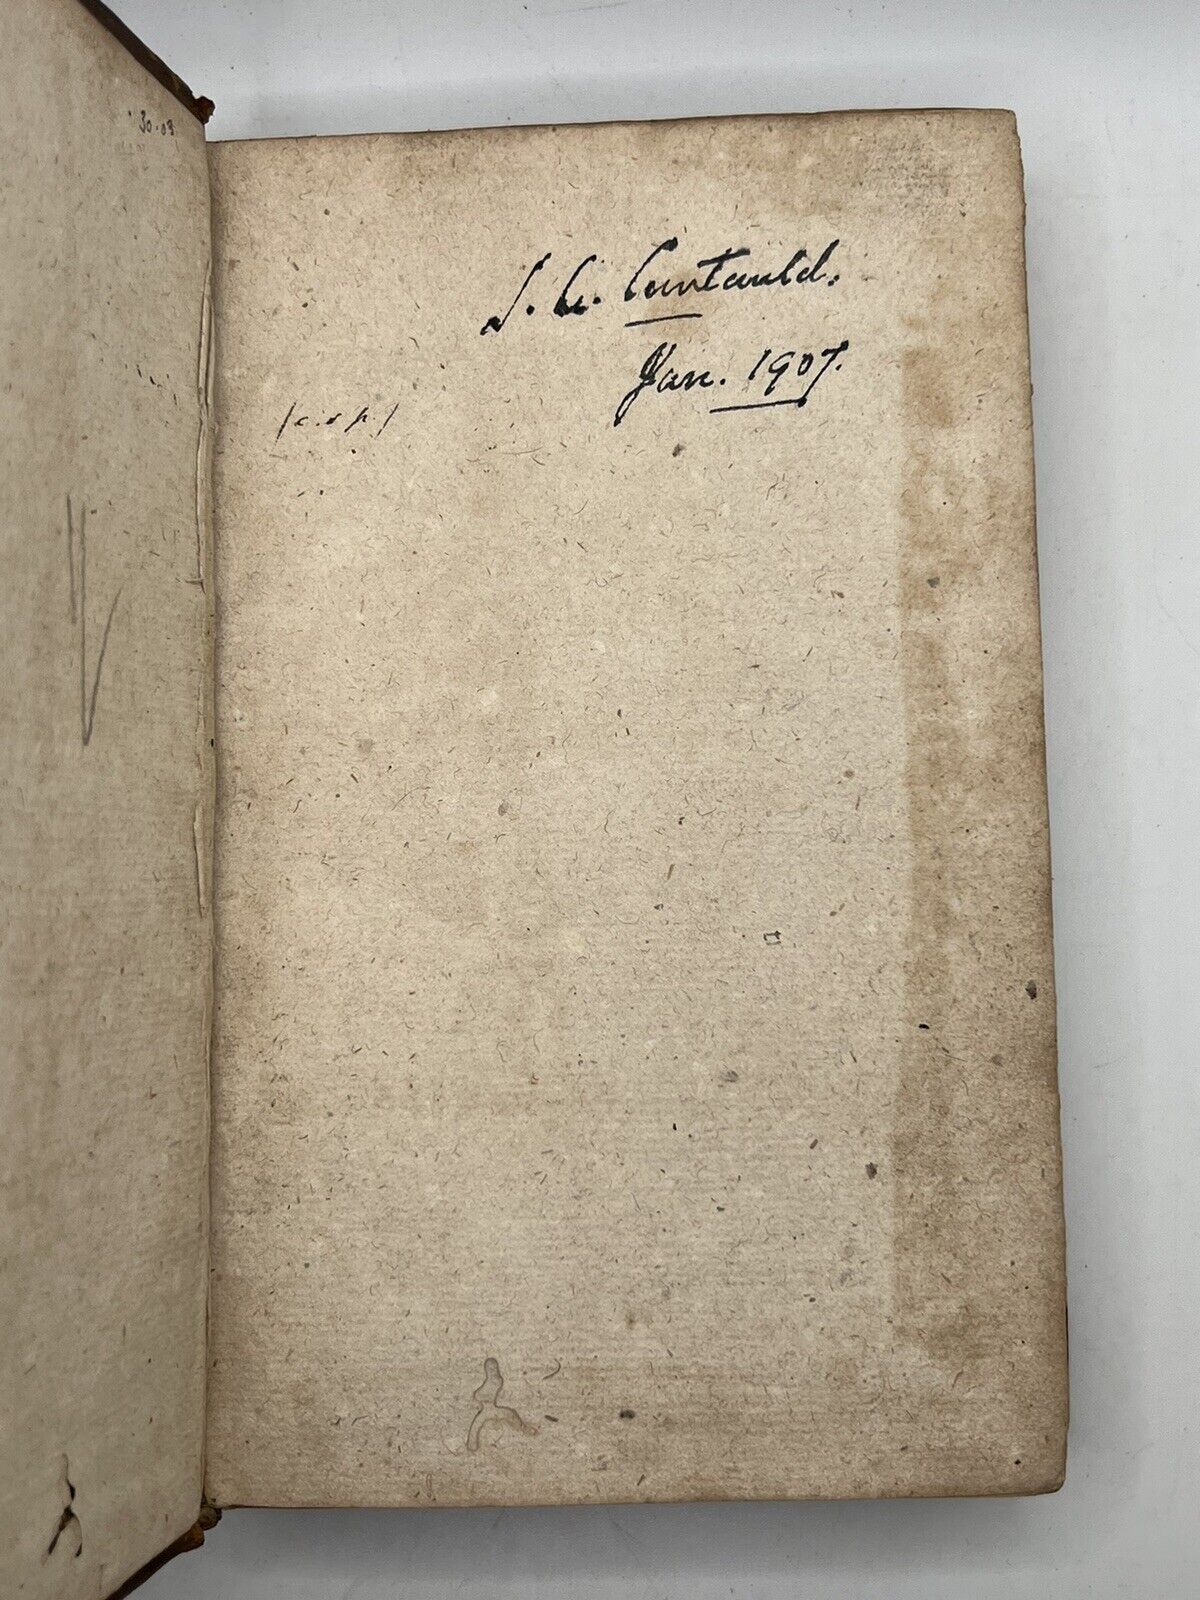 30.03
S. A. Courtauld.
Jan. 1907.
(c. & p.)